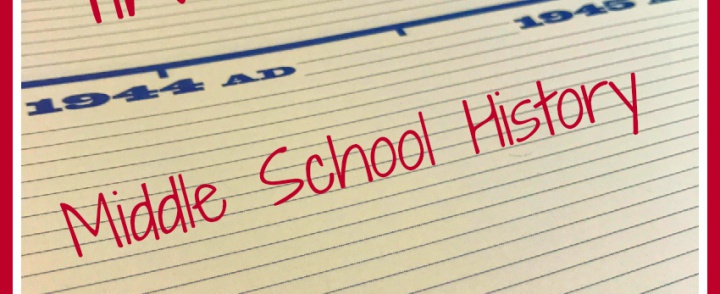 1945
1944 AD
Middle School History